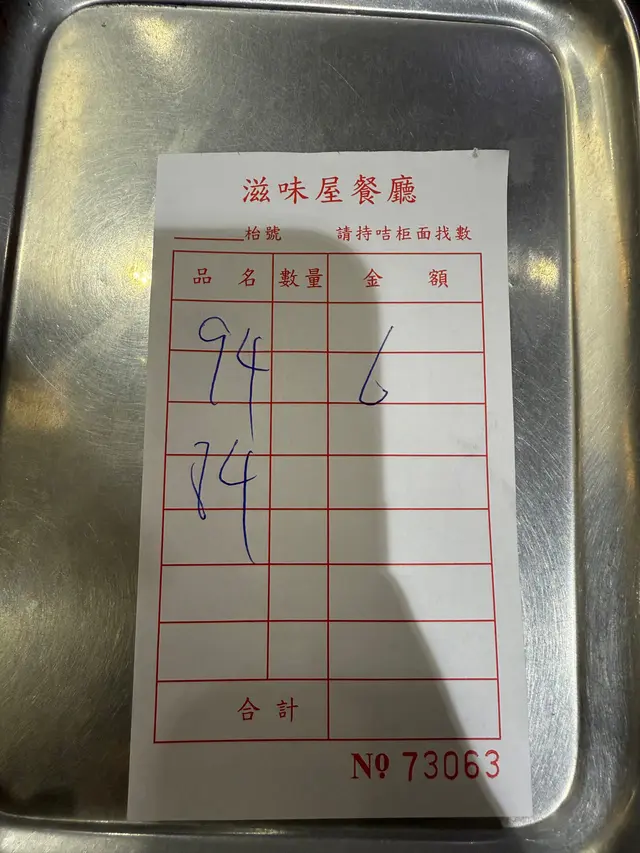 滋味屋餐廳
______枱號 請持咭柜面找數
品名 數量 金額
94 6
84
合計
Nº 73063